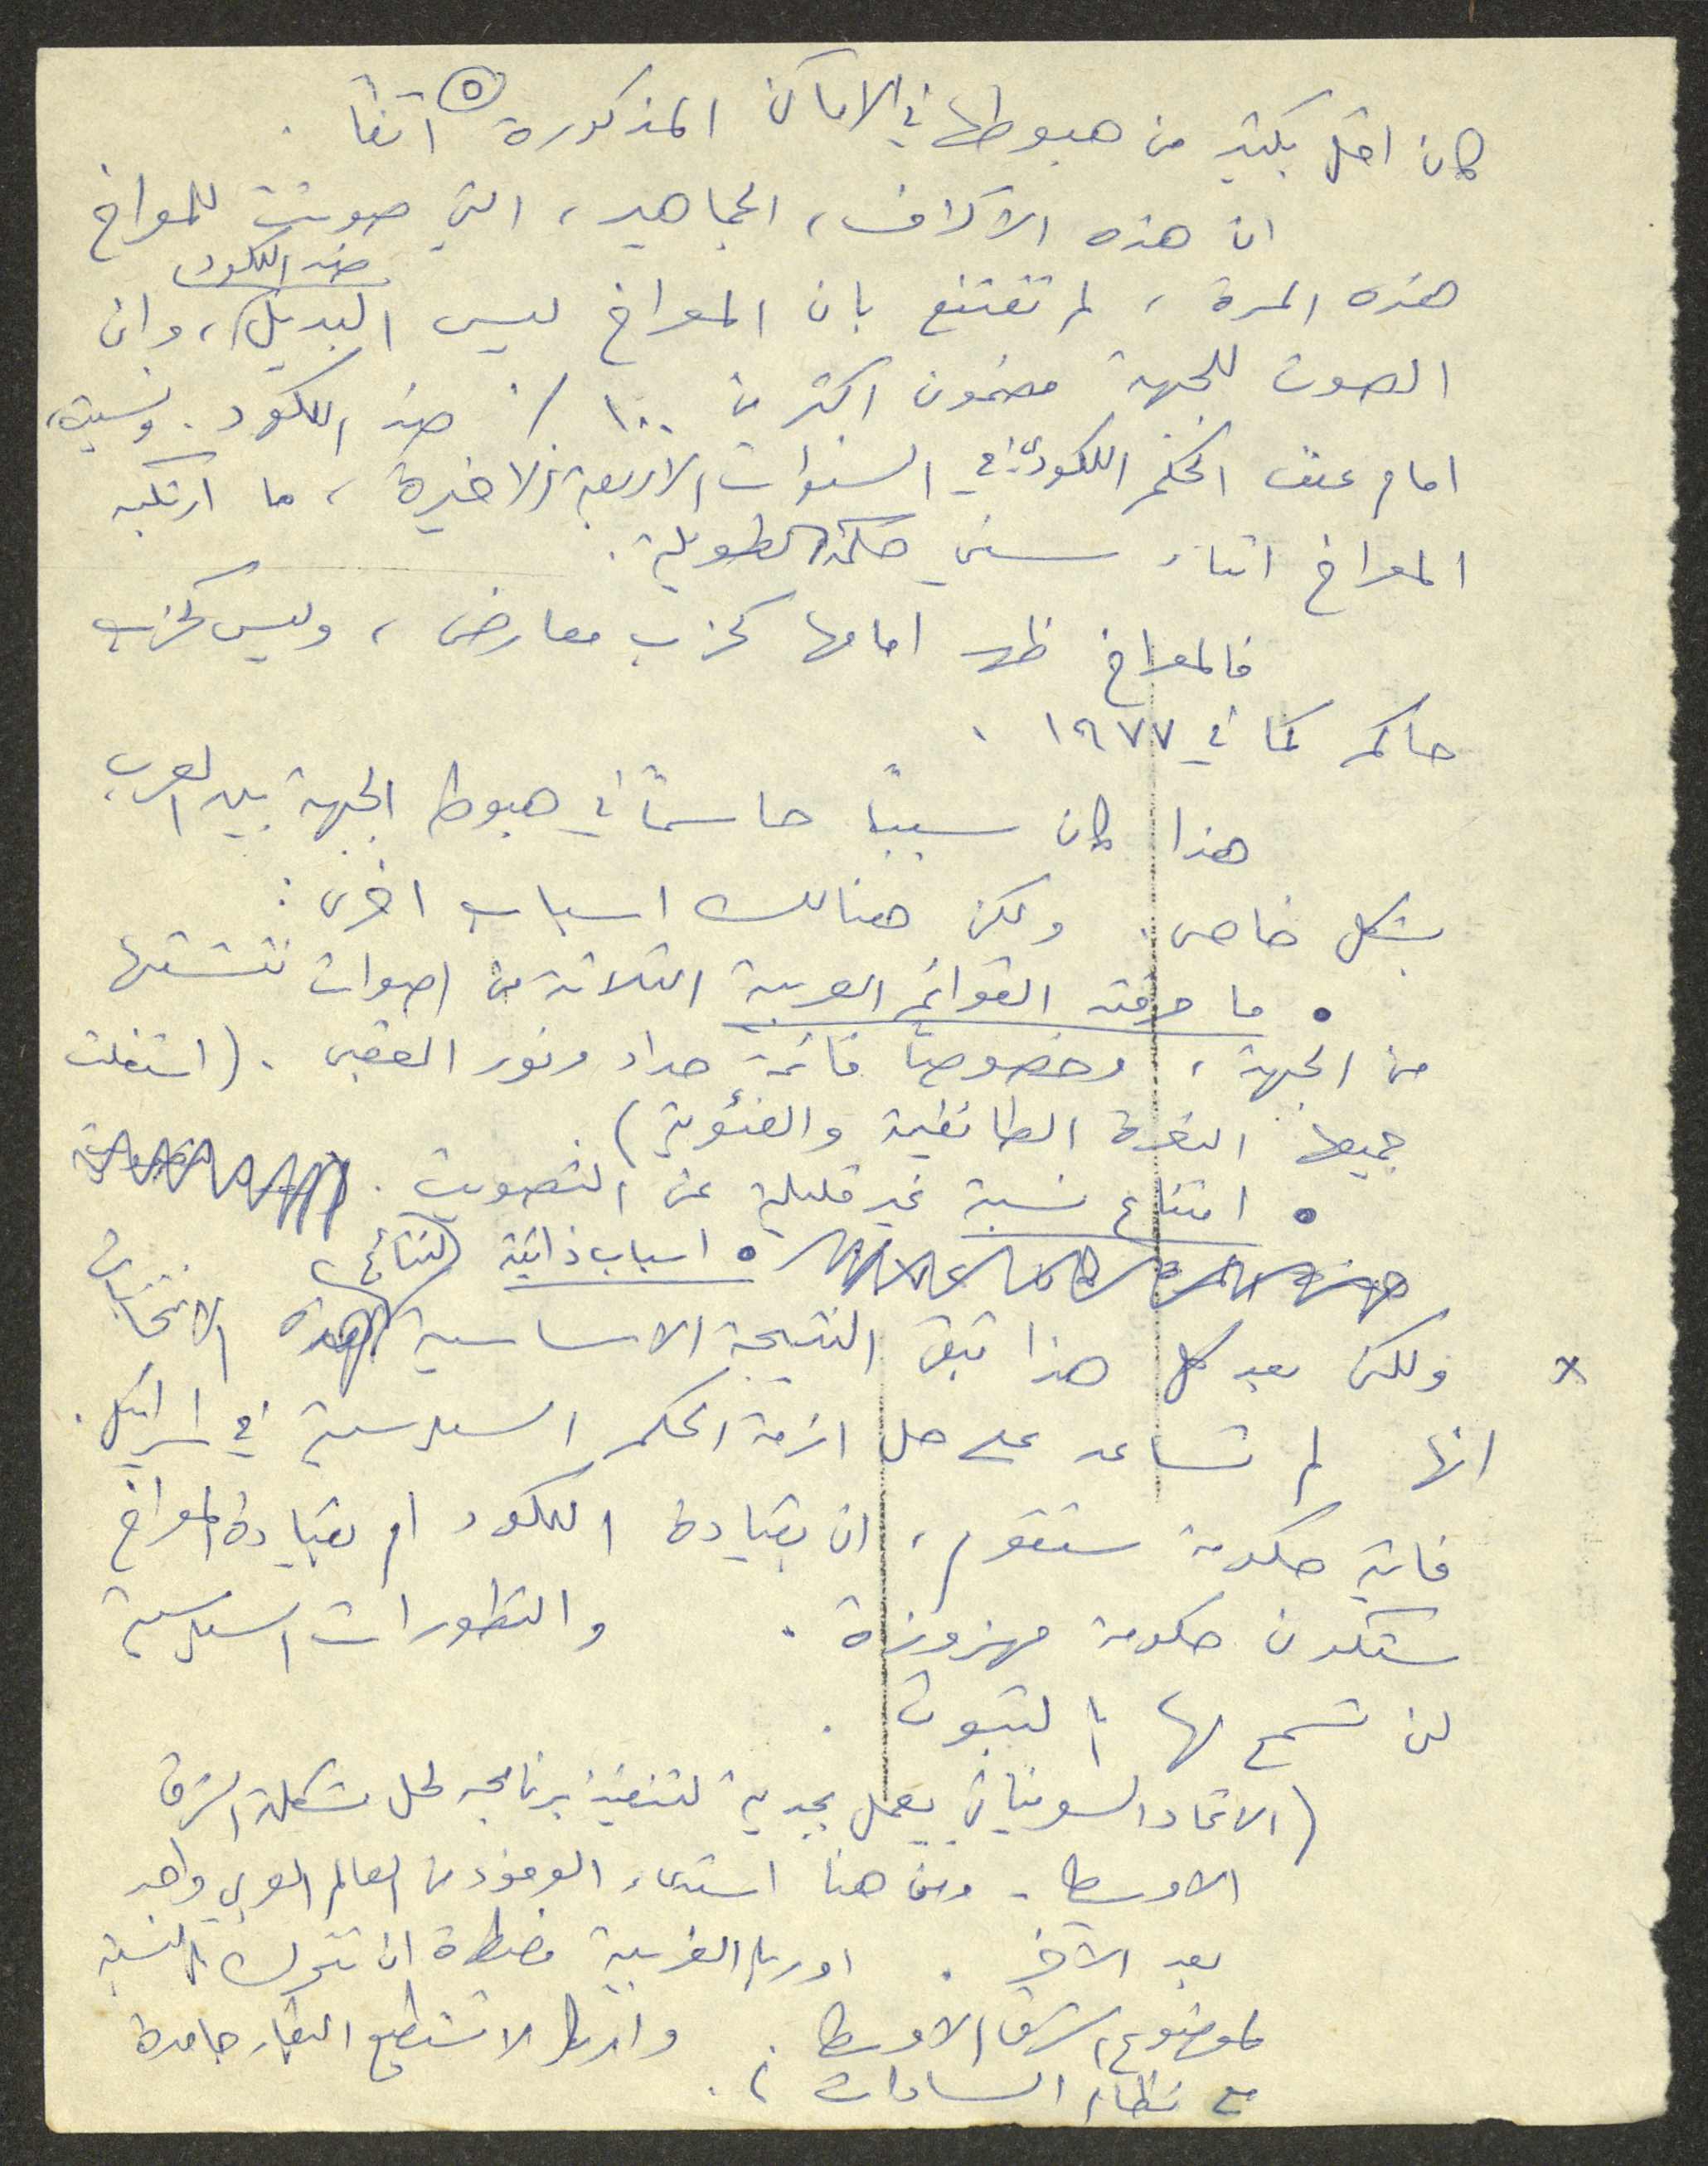 ٥
كان اقل بكثير من هبوطها في الاماكن المذكورة آنفاً .
ان هذه الآلاف، الجماهير، التي صوتت للمعراخ
هذه المرة، لم تقتنع بان المعراخ ليس البديل ضد الليكود، وان
الصوت للجبهة مضمون اكثر من ١٠٠٪ ضد الليكود. ونسيت،
امام عنف الحكم الليكودي في السنوات الاربعة الاخيرة، ما ارتكبه
المعراخ اثناء سني حكمه الطويلة.
فالمعراخ ظهر امامها كحزب معارض، وليس كحزب
حاكم كما في ١٩٧٧ .
هذا كان سبباً حاسماً في هبوط الجبهة بين العرب
بشكل خاص. ولكن هنالك اسباب اخرى:
• ما حرقته القوائم العربية الثلاثة من اصوات
من الجبهة، وخصوصاً قائمة حداد ونور العقبي. (استغلت
جميعها النعرة الطائفية والفئوية).
• امتناع نسبة غير قليلة عن التصويت.
• اسباب ذاتية
x ولكن بعد كل هذا تبقى النتيجة الاساسية لنتائج الانتخابات
انها لم تساعد على حل ازمة الحكم السياسية في اسرائيل.
فاية حكومة ستقوم، ان بقيادة الليكود ام بقيادة المعراخ
ستكون حكومة مهزوزة. والتطورات السياسية
لن تسمح لها بالثبوت.
(الاتحاد السوفياتي يعمل بجدية لتنفيذ برنامجه لحل مشكلة الشرق
الاوسط - ومن هنا استدعاء الوفود من العالم العربي واحد
بعد الآخر. اوربا الغربية مضطرة ان تتحرك بالنسبة
لموضوع الشرق الاوسط. لا تستطيع البقاء جامدة
مع نظام السادات).